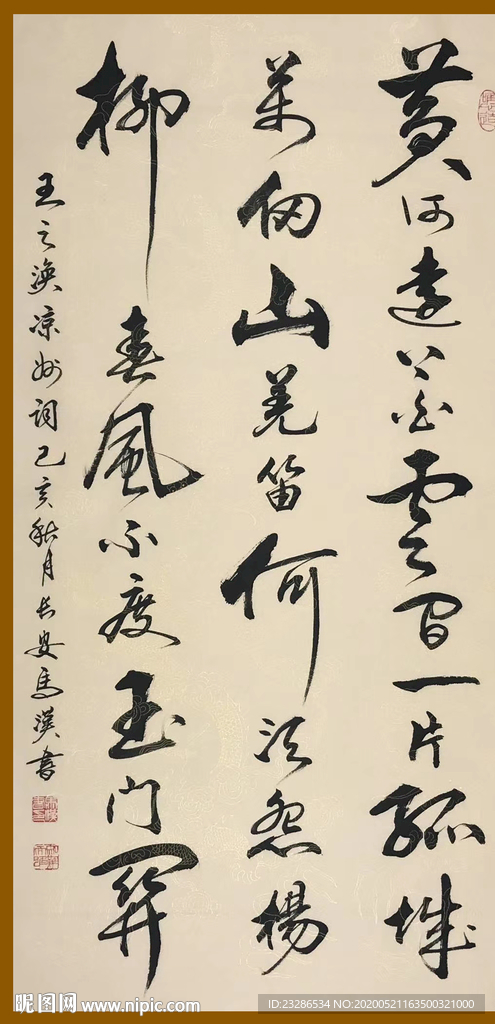 黃河遠上白雲間一片孤城
萬仞山羌笛何須怨楊
柳春風不度玉門關
王之渙凉州詞己亥秋月長安馬漢書
昵图网 www.nipic.com
ID:23286534 NO:20200521163500321000